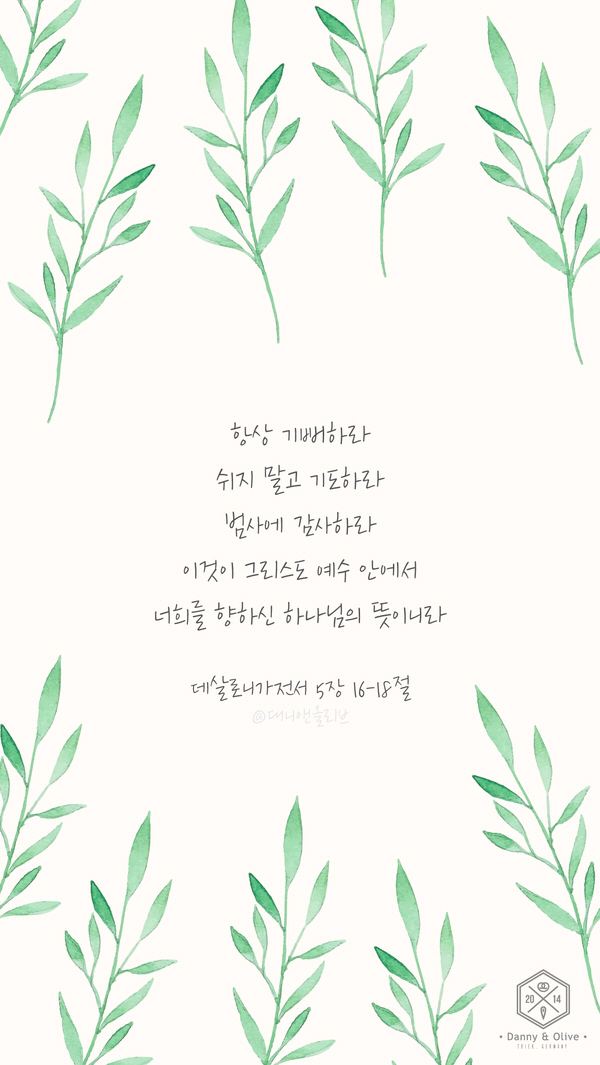 항상 기뻐하라
쉬지 말고 기도하라
범사에 감사하라
이것이 그리스도 예수 안에서
너희를 향하신 하나님의 뜻이니라
데살로니가전서 5장 16-18절
@대니앤올리브
20 14
• Danny & Olive •
TRIER. GERMANY